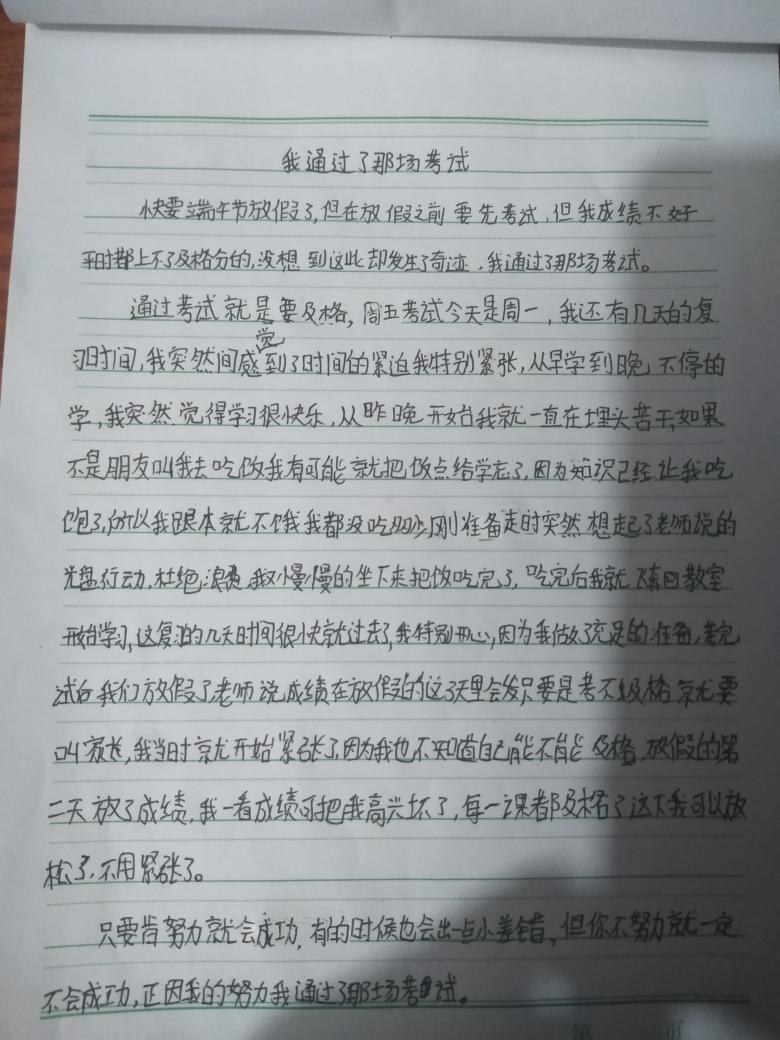 我通过了那场考试
快要端午节放假了,但在放假之前要先考试,但我成绩不好
平时都上不了及格分的,没想到这此却发生了奇迹,我通过了那场考试。
通过考试就是要及格,周五考试今天是周一,我还有几天的复
习时间,我突然间感觉到了时间的紧迫我特别紧张,从早学到晚不停的
学,我突然觉得学习很快乐,从昨晚开始我就一直在埋头苦干,如果
不是朋友叫我去吃饭我有可能就把饭点给学忘了,因为知识已经让我吃
饱了,所以我跟本就不饿我都没吃多少刚准备走时突然想起了老师说的
光盘行动,杜绝浪费,我又慢慢的坐下来把饭吃完了,吃完后我就飞奔回教室
开始学习,这复习的几天时间很快就过去了,我特别开心,因为我做了充足的准备,考完
试后我们放假了老师说成绩在放假的这3天里会发只要是考不及格就要
叫家长,我当时就开始紧张了因为我也不知道自己能不能及格,放假的第
二天放了成绩,我一看成绩可把我高兴坏了,每一课都及格了这下我可以放
松了,不用紧张了。
只要肯努力就会成功,有的时候也会出一点小差错,但你不努力就一定
不会成功,正因我的努力我通过了那场考试。
第 页